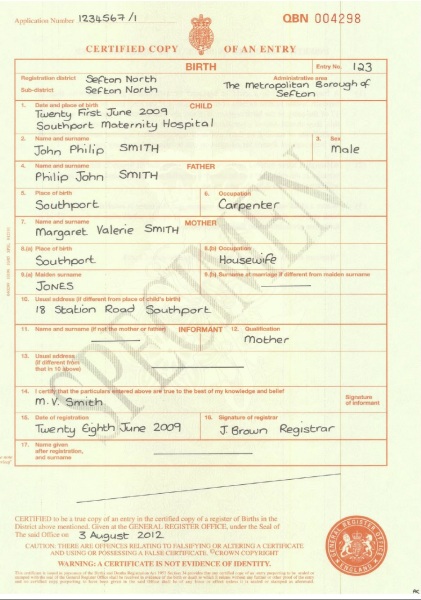 Application Number 1234567/1
QBN 004298
CERTIFIED COPY OF AN ENTRY
BIRTH
Entry No. 123
Registration district Sefton North
Administrative area
Sub-district Sefton North
The Metropolitan Borough of Sefton
1. Date and place of birth CHILD
Twenty First June 2009
Southport Maternity Hospital
2. Name and surname
John Philip SMITH
3. Sex
Male
4. Name and surname FATHER
Philip John SMITH
5. Place of birth
Southport
6. Occupation
Carpenter
7. Name and surname MOTHER
Margaret Valerie SMITH
8.(a) Place of birth
Southport
8.(b) Occupation
Housewife
9.(a) Maiden surname
JONES
9.(b) Surname at marriage if different from maiden surname
10. Usual address (if different from place of child's birth)
18 Station Road Southport
11. Name and surname (if not the mother or father) INFORMANT
12. Qualification
Mother
13. Usual address
(if different from
that in 10 above)
14. I certify that the particulars entered above are true to the best of my knowledge and belief
M.V. Smith
Signature
of informant
15. Date of registration
Twenty Eighth June 2009
16. Signature of registrar
J. Brown Registrar
17. Name given
after registration,
and surname
SPECIMEN
CERTIFIED to be a true copy of an entry in the certified copy of a register of Births in the
District above mentioned. Given at the GENERAL REGISTER OFFICE, under the Seal of
The said Office on 3 August 2012
CAUTION: THERE ARE OFFENCES RELATING TO FALSIFYING OR ALTERING A CERTIFICATE
AND USING OR POSSESSING A FALSE CERTIFICATE. ©CROWN COPYRIGHT
WARNING: A CERTIFICATE IS NOT EVIDENCE OF IDENTITY.
GENERAL REGISTER OFFICE
ENGLAND